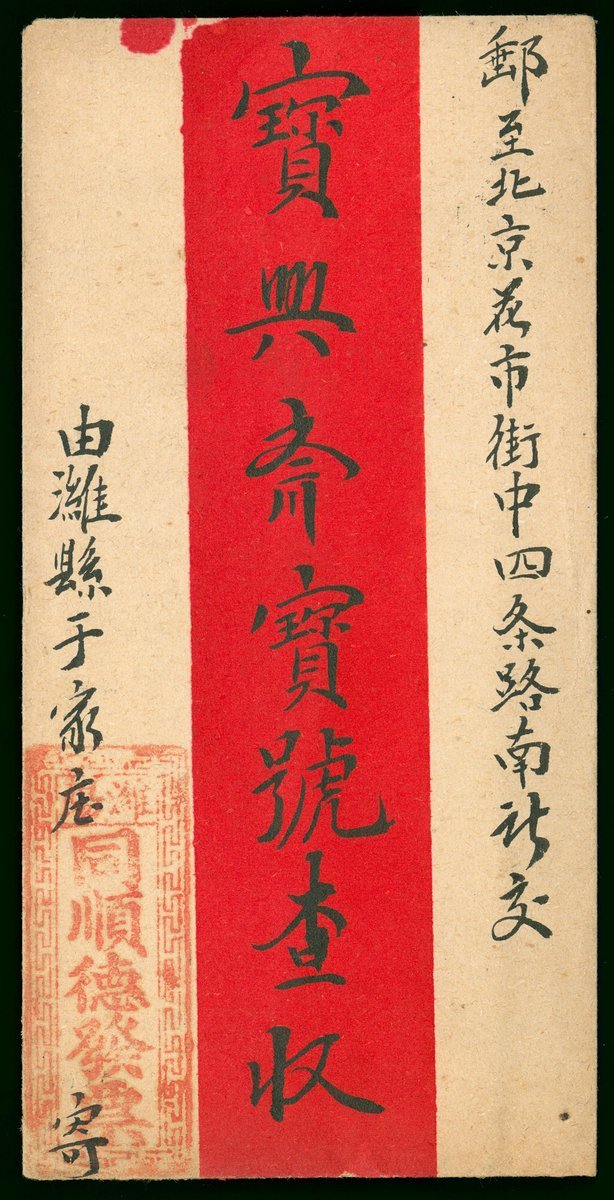 郵至北京花市街中四条路南交
寶興斋寶號查收
由濰縣于家庄 寄
同順德發票